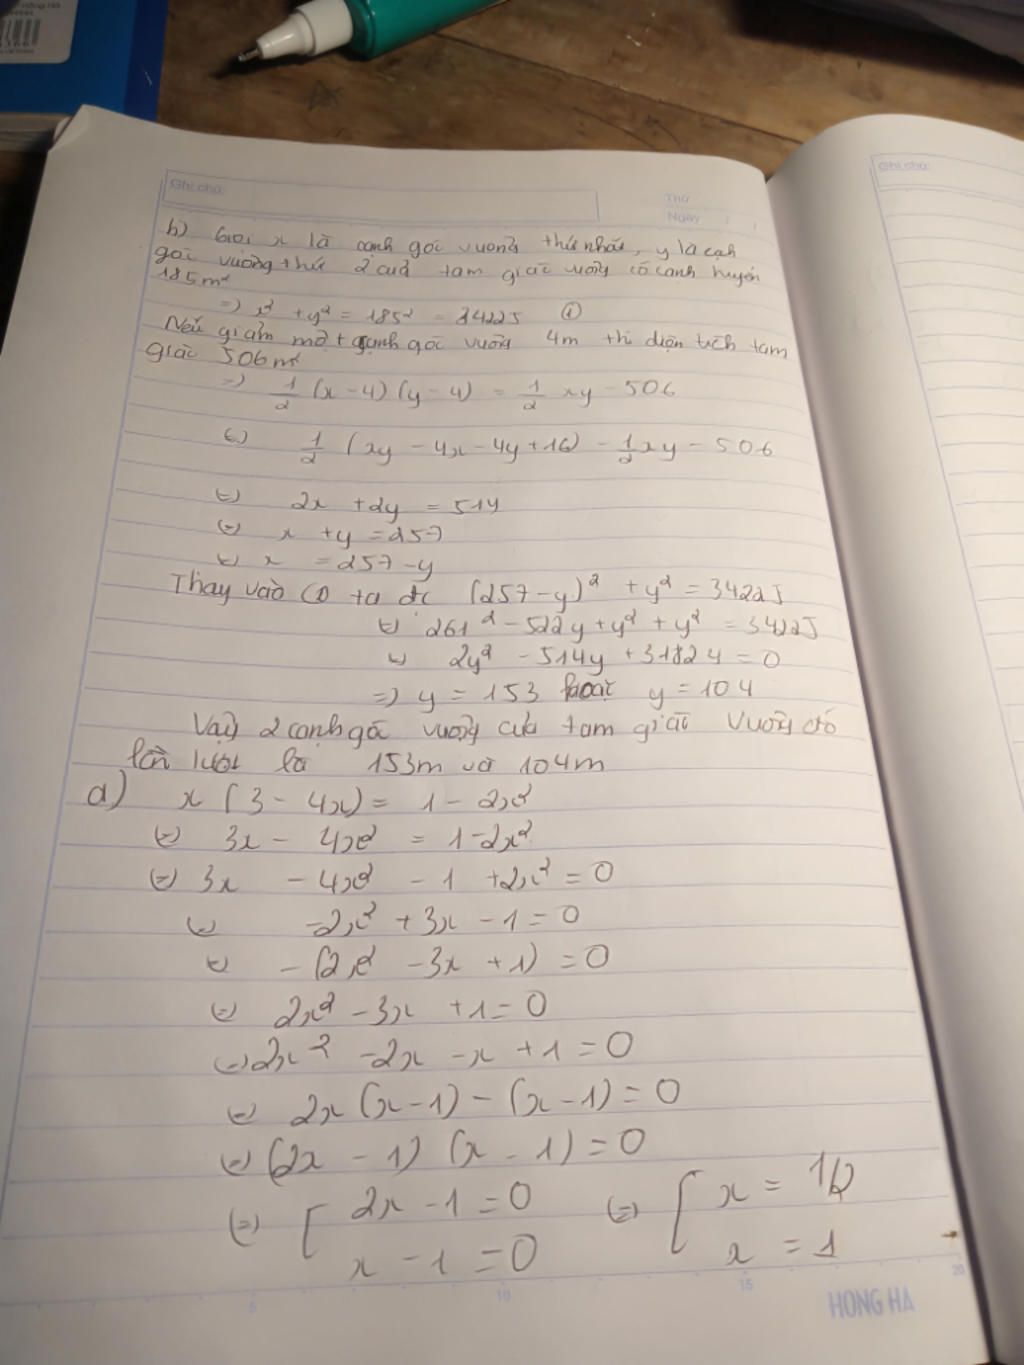 Ghi chú:
Thứ
Ngày
Ghi chú:
b) Gọi x là cạnh góc vuông thứ nhất, y là cạh
góc vuông thứ 2 của tam giác vuông có cạnh huyền
185m²
=> x² + y² = 185² = 34225 ①
Nếu giảm một cạnh góc vuông 4m thì diện tích tam
giác 506m²
=> 1/2 (x - 4) (y - 4) = 1/2 xy - 506
<=> 1/2 (xy - 4x - 4y + 16) - 1/2 xy - 506
<=> 2x + 2y = 514
<=> x + y = 257
<=> x = 257 - y
Thay vào ① ta đc (257 - y)² + y² = 34225
<=> 261² - 522y + y² + y² = 34225
<=> 2y² - 514y + 31824 = 0
=> y = 153 hoặc y = 104
Vậy 2 cạnh góc vuông của tam giác vuông đó
lần lượt là 153m và 104m
a) x (3 - 4x) = 1 - 2x²
<=> 3x - 4x² = 1 - 2x²
<=> 3x - 4x² - 1 + 2x² = 0
<=> -2x² + 3x - 1 = 0
<=> - (2x² - 3x + 1) = 0
<=> 2x² - 3x + 1 = 0
<=> 2x² - 2x - x + 1 = 0
<=> 2x (x - 1) - (x - 1) = 0
<=> (2x - 1) (x - 1) = 0
<=> [ 2x - 1 = 0 <=> [ x = 1/2
x - 1 = 0 x = 1
5 10 15 20
HONG HA